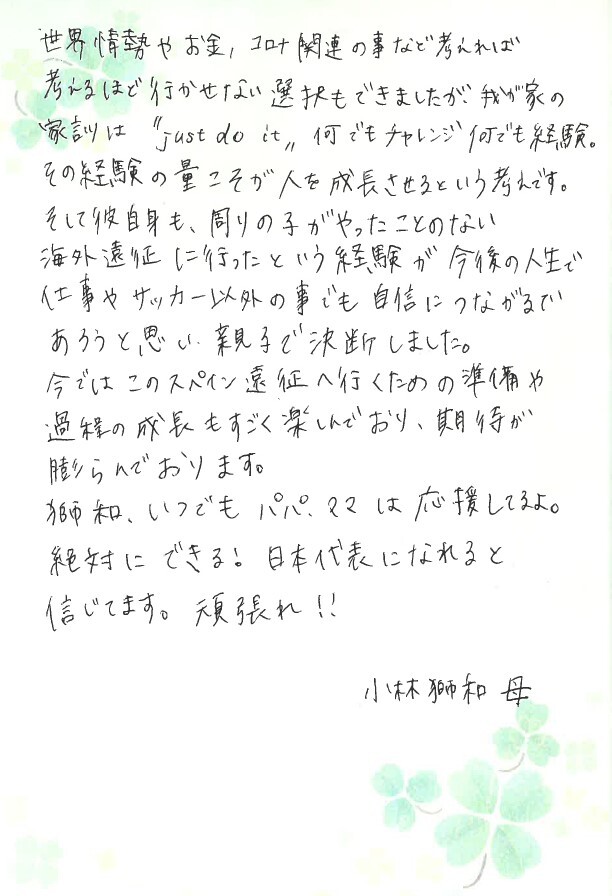 世界情勢やお金, コロナ関連の事など考えれば
考えるほど行かせない選択もできましたが、我が家の
家訓は "just do it" 何でもチャレンジ何でも経験。
その経験の量こそが人を成長させるという考えです。
そして彼自身も、周りの子がやったことのない
海外遠征に行ったという経験が今後の人生で
仕事やサッカー以外の事でも自信につながるで
あろうと思い、親子で決断しました。
今ではこのスペイン遠征へ行くための準備や
過程の成長もすごく楽しんでおり、期待が
膨らんでおります。
獅和、いつでもパパ、ママは応援してるよ。
絶対にできる! 日本代表になれると
信じてます。頑張れ!!
小林獅和 母